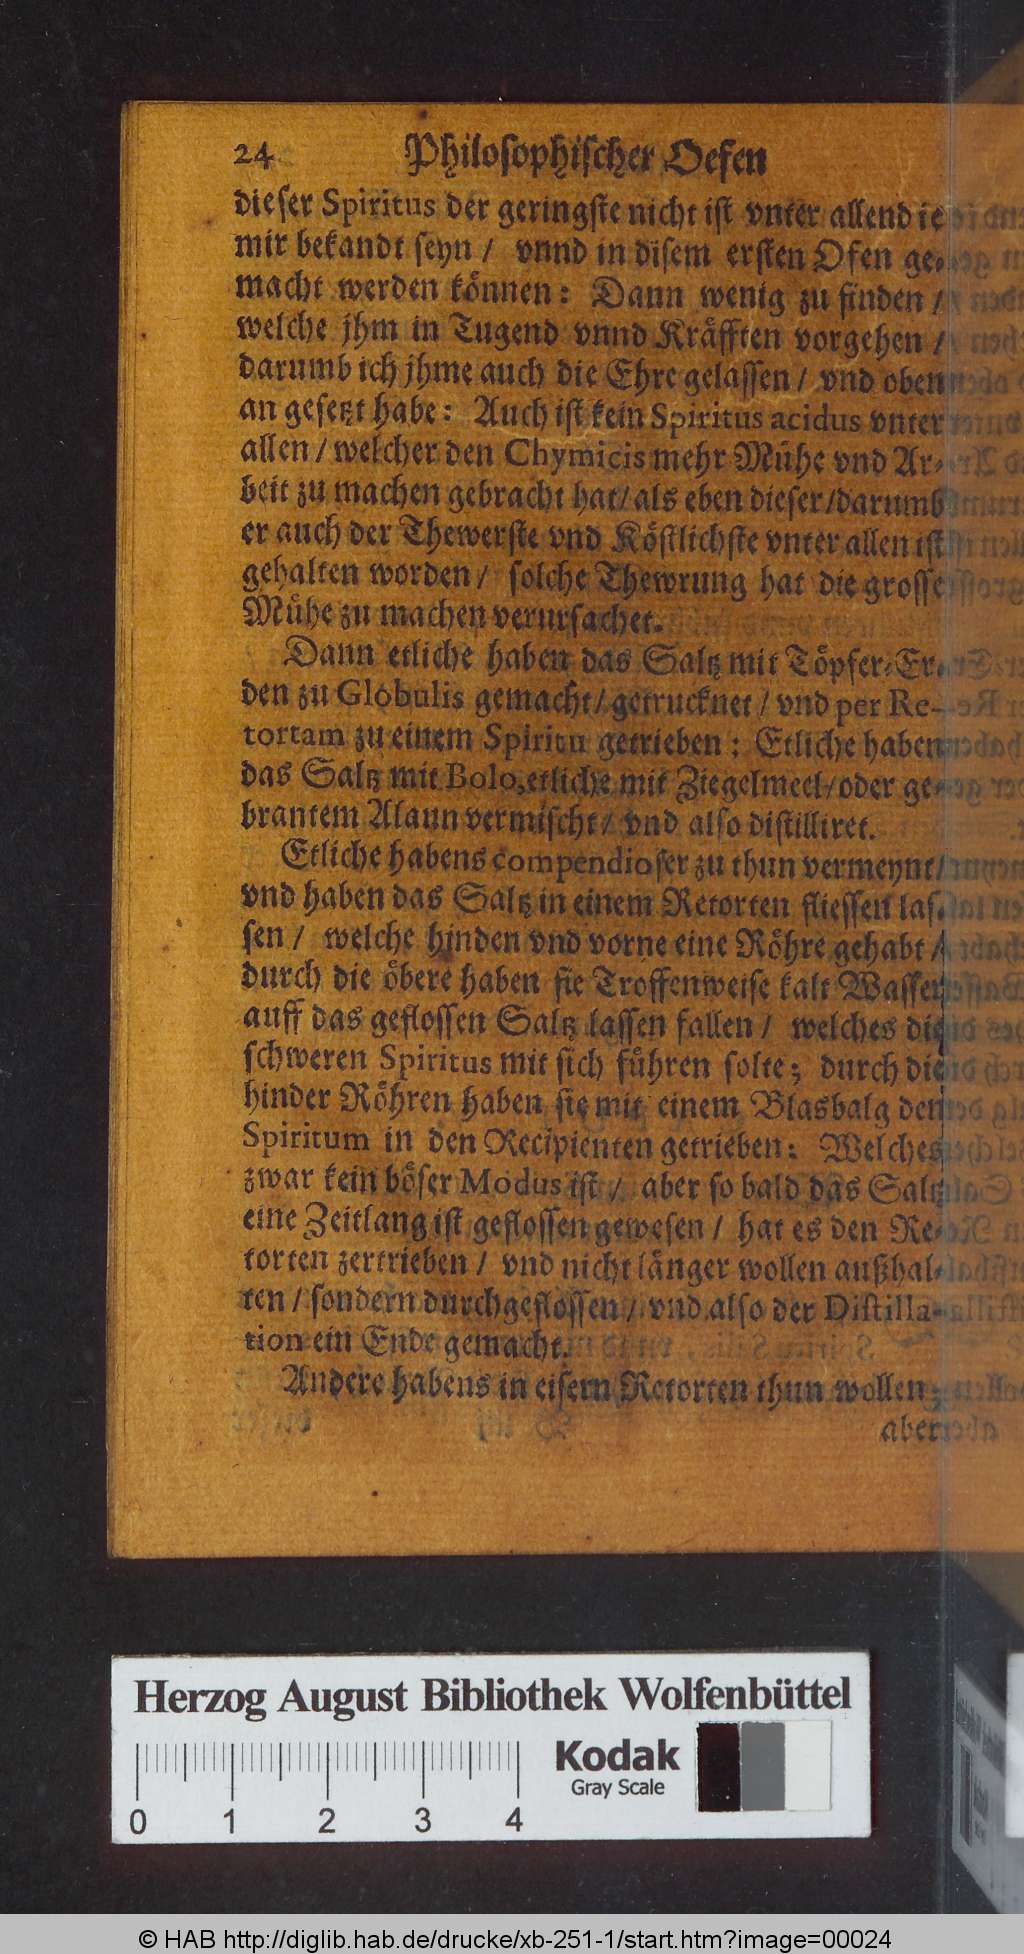 24 Philosophischer Oefen
dieser Spiritus der geringste nicht ist vnter allend ie
mir bekandt seyn / vnnd in disem ersten Ofen ge-
macht werden können: Dann wenig zu finden /
welche jhm in Tugend vnnd Kräfften vorgehen /
darumb ich jhme auch die Ehre gelassen / vnd oben
an gesetzt habe: Auch ist kein Spiritus acidus vnter
allen / welcher den Chymicis mehr Mühe vnd Ar-
beit zu machen gebracht hat / als eben dieser / darumb
er auch der Thewerste vnd Köstlichste vnter allen ist
gehalten worden / solche Thewrung hat die grosse
Mühe zu machen verursachet.
Dann etliche haben das Saltz mit Töpfer-Er-
den zu Globulis gemacht / getrucknet / vnd per Re-
tortam zu einem Spiritu getrieben: Etliche haben
das Saltz mit Bolo, etliche mit Ziegelmeel / oder ge-
brantem Alaun vermischt / vnd also distilliret.
Etliche habens compendioser zu thun vermeynt /
vnd haben das Saltz in einem Retorten fliessen las-
sen / welche hinden vnd vorne eine Röhre gehabt /
durch die öbere haben sie Troffenweise kalt Wasser
auff das geflossen Saltz lassen fallen / welches die
schweren Spiritus mit sich führen solte; durch die
hinder Röhren haben sie mit einem Blasbalg den
Spiritum in den Recipienten getrieben: Welches
zwar kein böser Modus ist / aber so bald das Saltz
eine Zeitlang ist geflossen gewesen / hat es den Re-
torten zertrieben / vnd nicht länger wollen außhal-
ten / sondern durchgeflossen / vnd also der Distilla-
tion ein Ende gemacht.
Andere habens in eisern Retorten thun wollen;
aber
Herzog August Bibliothek Wolfenbüttel
Kodak
Gray Scale
0 1 2 3 4
© HAB http://diglib.hab.de/drucke/xb-251-1/start.htm?image=00024